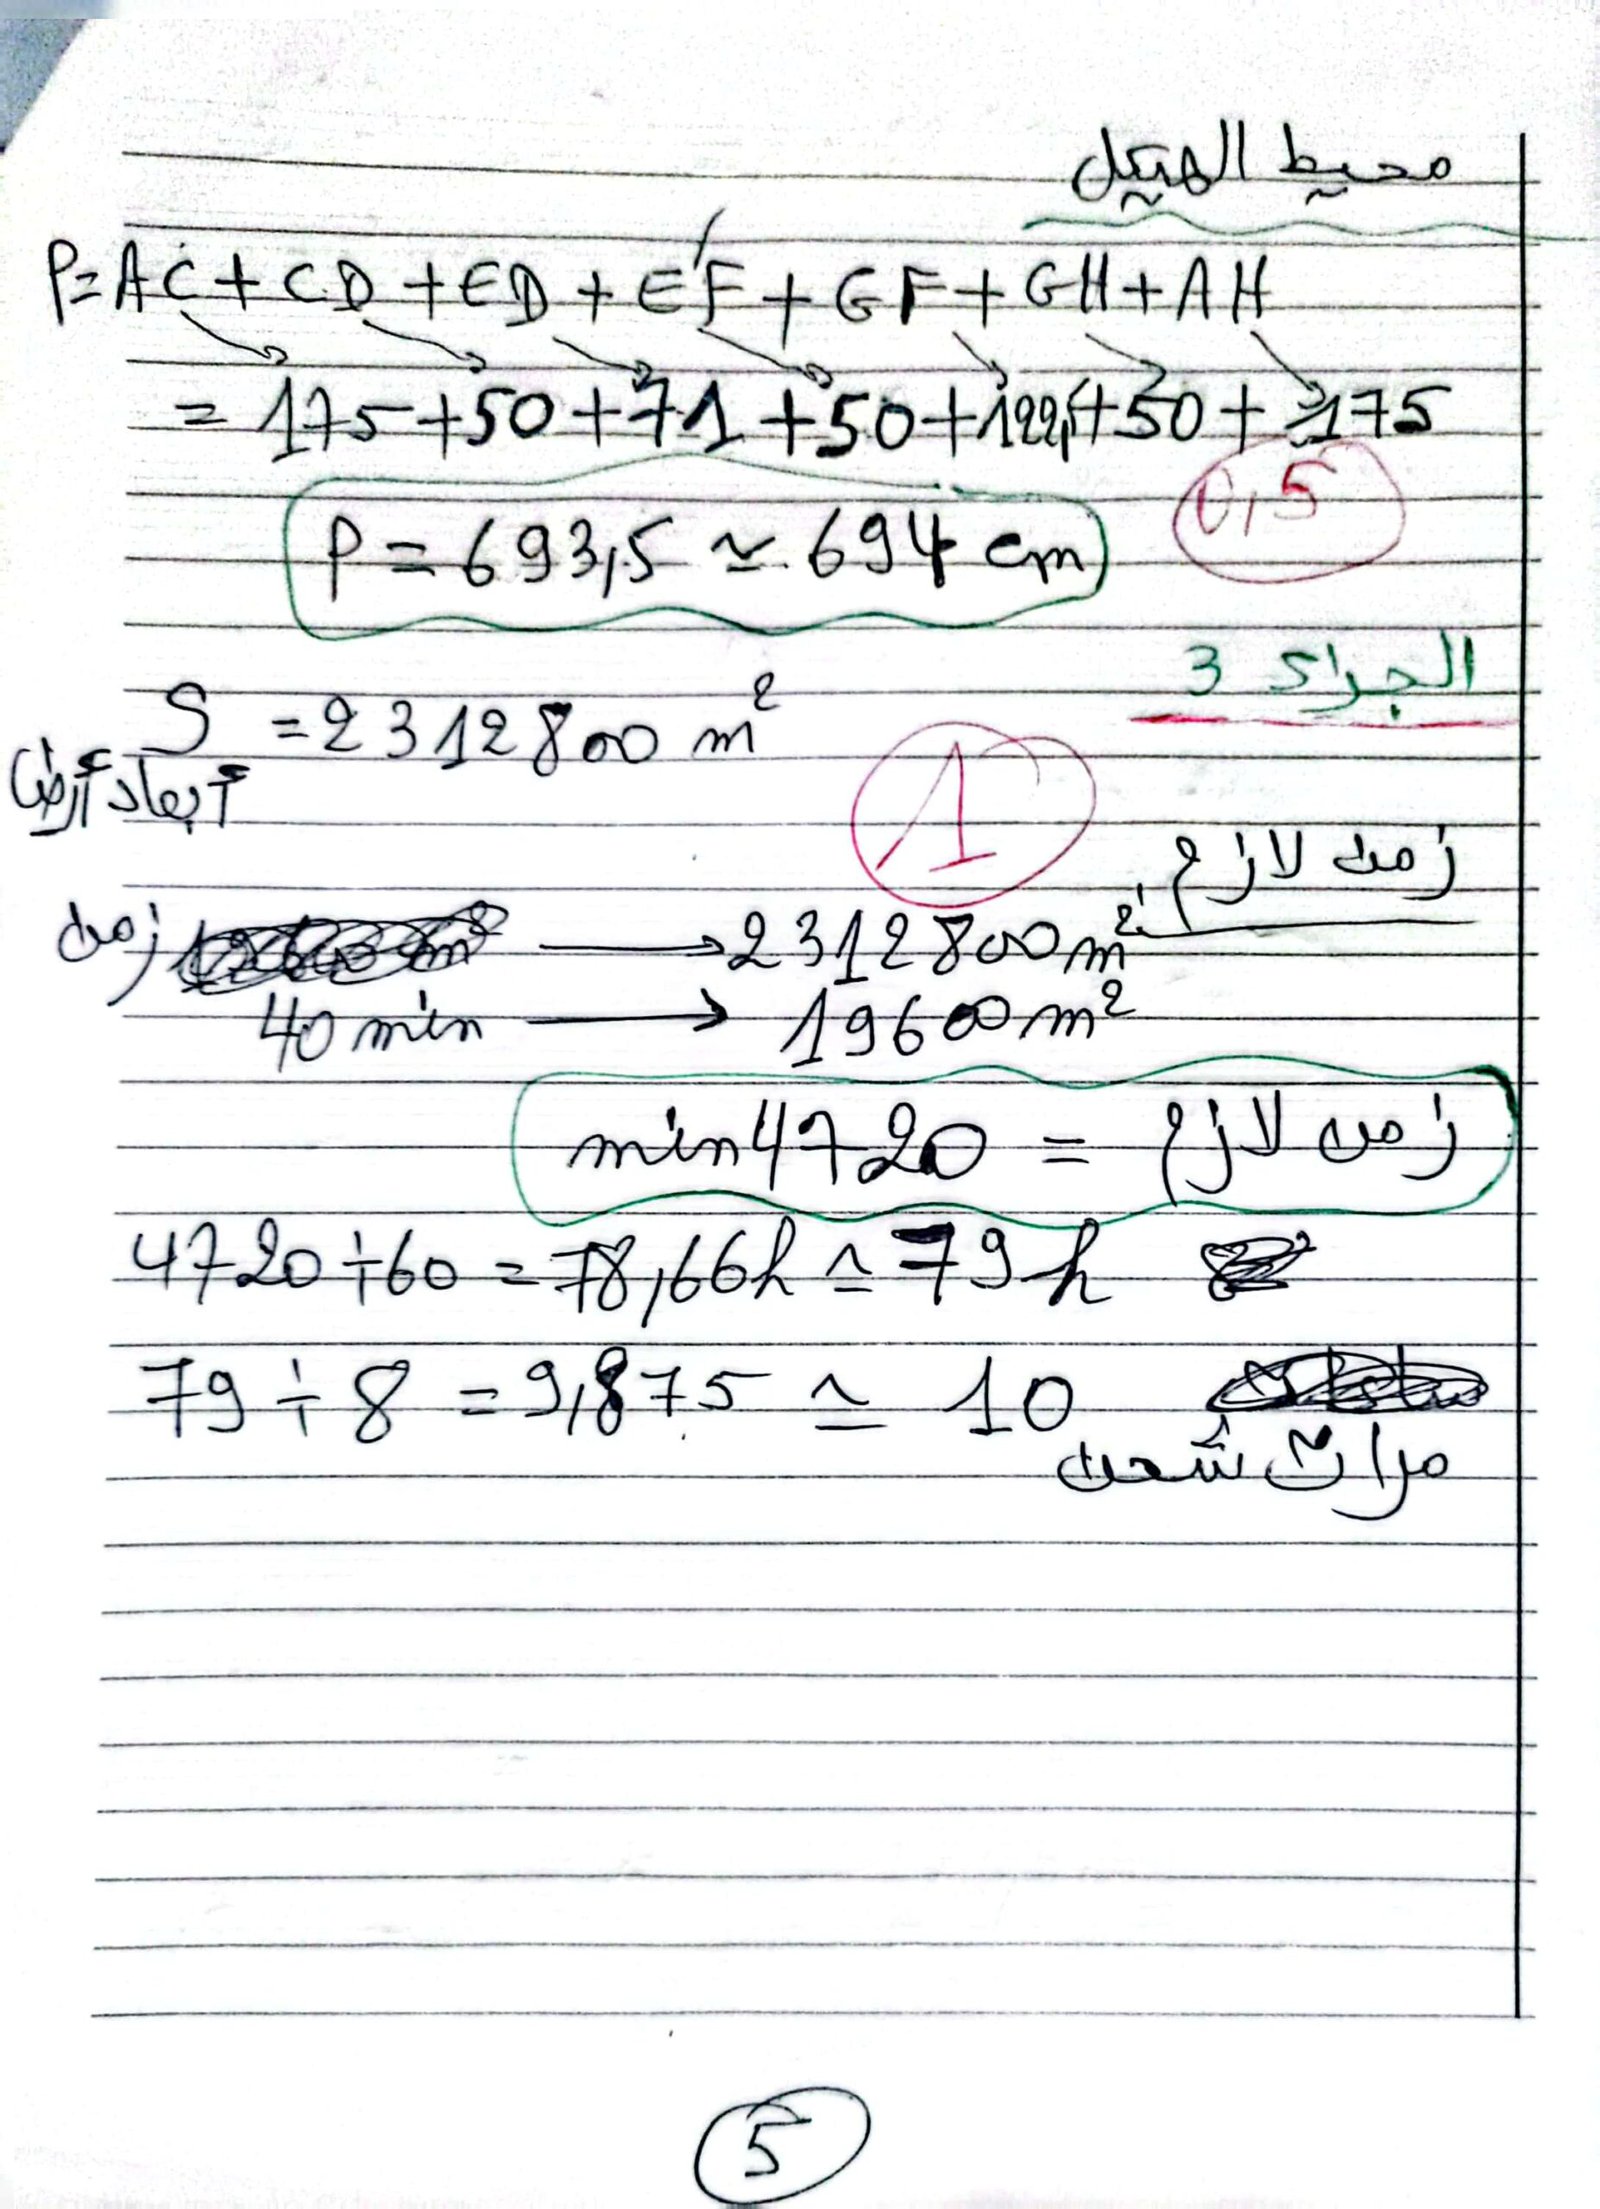 محيط الهيكل
P=AC+CD+ED+EF+GF+GH+AH
=175+50+71+50+122,5+50+175
0,5
P=693,5≃694 cm
الجزء 3
S =2312800 m²
1
زمن لازم
زمن → 2312800 m²
40 min → 19600 m²
زمن لازم = 4720 min
4720÷60 =78,66h ≃ 79 h
79÷8 =9,875 ≃ 10
مرات شحن
5